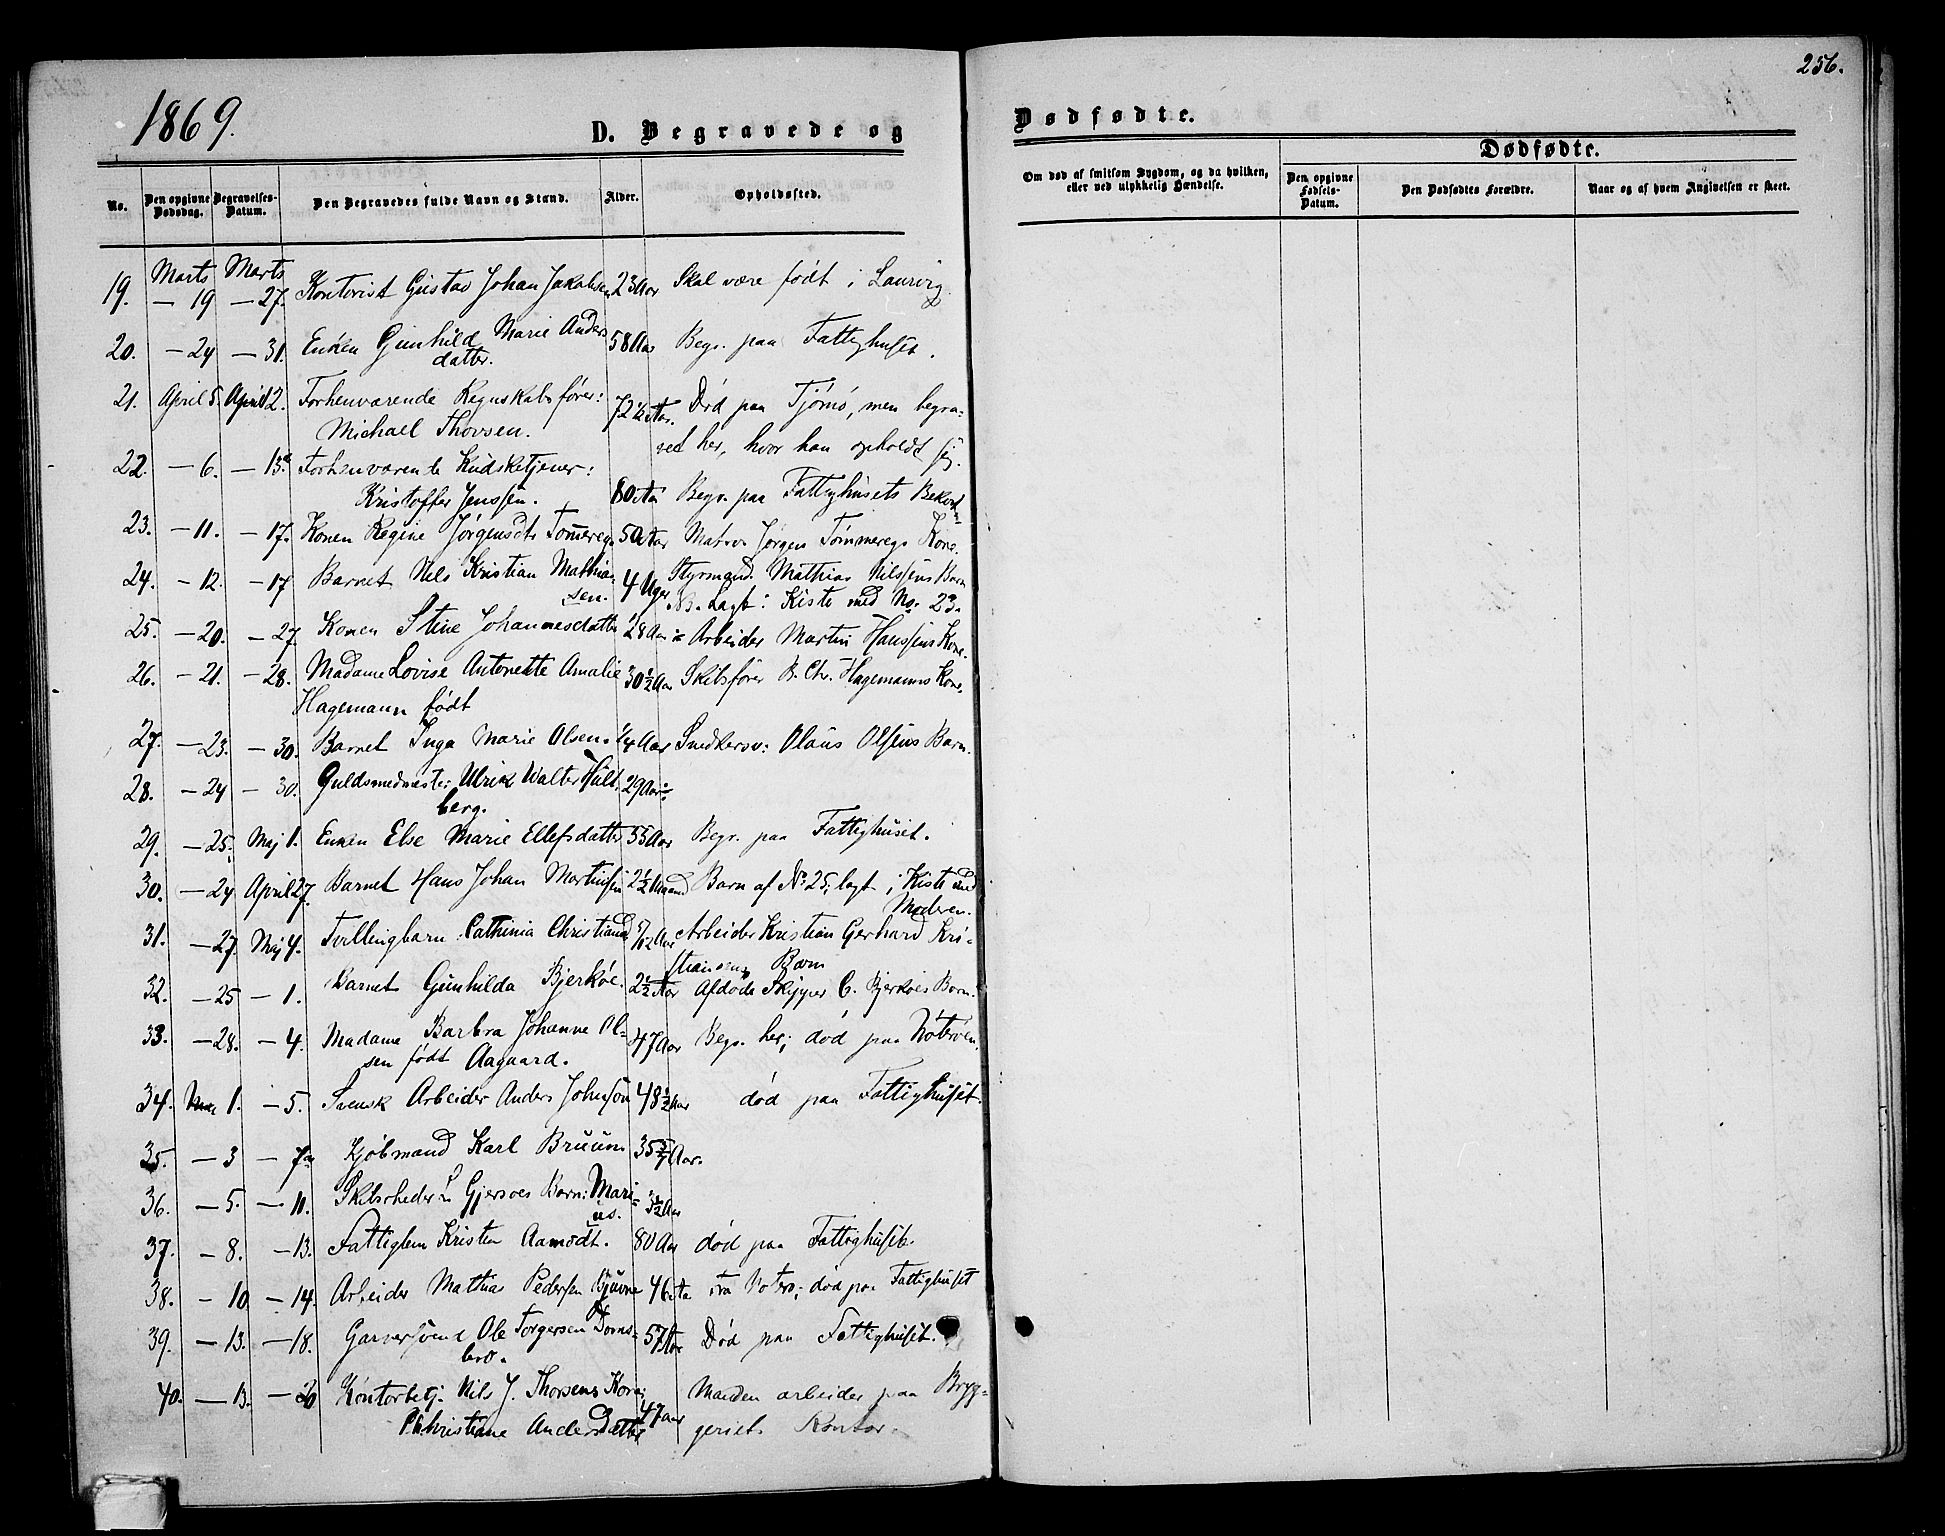 256.
1869.
D. Begravede og
Dødfødte.
No.
Den opgivne Dødsdag.
Begravelses-Datum.
Den Begravedes fulde Navn og Stand.
Alder.
Opholdssted.
Om død af smitsom Sygdom, og da hvilken, eller ved ulykkelig Hændelse.
Dødfødte.
Den opgivne Fødsels-Datum.
Den Dødfødtes Forældre.
Naar og af hvem Angivelsen er skeet.
19. Marts — 19 Marts — 27. Kontorist Gustav Johan Jakobsen 23 Aar Skal være født i Laurvig
20. — 24 — 31. Enken Gunhild Marie Anders 58 Aar Begr. paa Fattighuset.
datter.
21. April 5. April 12. Forhenværende Regnskabsfører: 72 ½ Aar. Død paa Tjømø, men begra-
Michael Thorsen. vet her, hvor han opholdt sig.
22. — 6. — 13. Forhenværende Kudsketjener:
Kristoffer Jenssen. 80 Aar Begr. paa Fattighusets Bekost-
23. — 11. — 17. Konen Regine Jørgensdt. Tømmereg. 50 Aar Matr. Jørgen Tømmeregs Kone.
24. — 12. — 17 Barnet Nils Kristian Mathia- 4 Uger Styrmand Mathias Nilssens Barn
sen. NB. Lagt i Kiste med No. 23.
25. — 20. — 27 Konen Stine Johannesdatter 28 Aar Arbeider Martin Hanssens Kone.
26. — 21. — 28. Madame Lovise Antonette Amalie 30 ½ Aar Skibsfører B. Chr. Hagemanns Kone.
Hagemann født
27. — 23. — 30. Barnet Inga Marie Olsen. ¼ Aar Snedkersv: Olaus Olsens Barn.
28. — 24 — 30. Guldsmedmester Ulrik Walter Hült- 29 Aar
berg.
29. — 25. Maj 1. Enken Else Marie Ellefsdatter 55 Aar Begr. paa Fattighuset.
30. — 24 April 27. Barnet Hans Johan Martinsen 2½ Maaned Barn af No. 25, lagt i Kiste med
Moderen.
31. — 27. Maj 4. Tvillingbarn Cathinia Christiand 5/12 Aar Arbeider Kristian Gerhard Kri-
stiansens Barn
32. — 25 — 1. Barnet Gunhilda Bjerkøe. 2½ Aar Afdøde Skipper C. Bjerkøes Barn.
33. — 28. — 4. Madame Barbra Johanne Ol- 47 Aar Begr. her; død paa Nøterøen.
sen født Aagaard.
34. Mai 1. — 5. Svensk Arbeider Anders Johnson 48 ½ Aar død paa Fattighuset.
35. — 3 — 7. Kjøbmand Karl Bruun 35 Aar.
36. — 5. — 11. Skibsrheder Gjersøes Barn: Mari- 3½ Aar
us.
37. — 8. — 13. Fattiglem Kristen Aamodt. 80 Aar død paa Fattighuset.
38. — 10 — 14. Arbeider Mathias Pedersen 46 Aar fra Nøterø; død paa Fattighuset
39. — 13. — 18. Garversvend Ole Torgersen Doms- 57 Aar Død paa Fattighuset.
bro.
40. — 13. — 20 Kontorbetj. Nils J. Thorsens Kone Manden arbeider paa Bryg-
Christine Andersdatter 47 aar geriets Kontor.